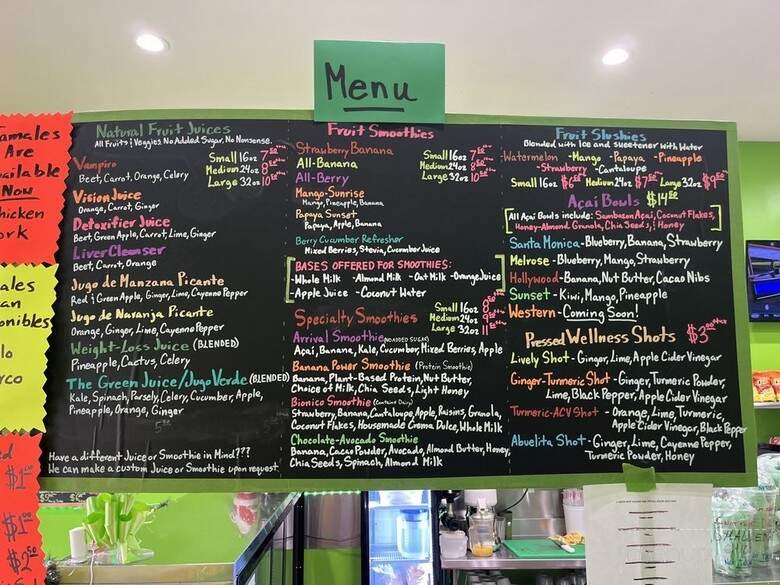 Menu
amales
Are
vailable
Now
hicken
ork
ales
an
onibles
lo
rco
ed
$1
$1
$2
Natural Fruit Juices
All Fruits & Veggies, No Added Sugar, No Nonsense.
Small 16oz
Medium 24oz
Large 32oz
Vampiro
Beet, Carrot, Orange, Celery
Vision Juice
Orange, Carrot, Ginger
Detoxifier Juice
Beet, Green Apple, Carrot, Lime, Ginger
Liver Cleanser
Beet, Carrot, Orange
Jugo de Manzana Picante
Red & Green Apple, Ginger, Lime, Cayenne Pepper
Jugo de Naranja Picante
Orange, Ginger, Lime, Cayenne Pepper
Weight-Loss Juice (BLENDED)
Pineapple, Cactus, Celery
The Green Juice/Jugo Verde (BLENDED)
Kale, Spinach, Parsely, Celery, Cucumber, Apple,
Pineapple, Orange, Ginger
Have a different Juice or Smoothie in Mind???
We can make a custom Juice or Smoothie upon request
Fruit Smoothies
Strawberry Banana
All-Banana
All-Berry
Small 16oz
Medium 24oz
Large 32oz
Mango-Sunrise
Mango, Pineapple, Banana
Papaya Sunset
Papaya, Apple, Banana
Berry Cucumber Refresher
Mixed Berries, Stevia, Cucumber Juice
BASES OFFERED FOR SMOOTHIES:
-Whole Milk -Almond Milk -Oat Milk -Orange Juice
-Apple Juice -Coconut Water
Specialty Smoothies
Small 16oz
Medium 24oz
Large 32oz
Arrival Smoothie (NO ADDED SUGAR)
Açai, Banana, Kale, Cucumber, Mixed Berries, Apple
Banana Power Smoothie (Protein Smoothie)
Banana, Plant-Based Protein, Nut Butter,
Choice of Milk, Chia Seeds, Light Honey
Bionico Smoothie (Contains Dairy)
Strawberry, Banana, Cantaloupe, Apple, Raisins, Granola,
Coconut Flakes, Housemade Crema Dulce, Whole Milk
Chocolate-Avocado Smoothie
Banana, Cacao Powder, Avocado, Almond Butter, Honey,
Chia Seeds, Spinach, Almond Milk
Fruit Slushies
Blended with Ice and Sweetener with Water
-Watermelon -Mango -Papaya -Pineapple
-Strawberry -Cantaloupe
Small 16oz Medium 24oz Large 32oz
Açai Bowls $14
All Açai Bowls include: Sambazon Açai, Coconut Flakes,
Honey-Almond Granola, Chia Seeds, & Honey
Santa Monica - Blueberry, Banana, Strawberry
Melrose - Blueberry, Mango, Strawberry
Hollywood - Banana, Nut Butter, Cacao Nibs
Sunset - Kiwi, Mango, Pineapple
Western - Coming Soon!
Pressed Wellness Shots $3
Lively Shot - Ginger, Lime, Apple Cider Vinegar
Ginger-Turmeric Shot - Ginger, Turmeric Powder,
Lime, Black Pepper, Apple Cider Vinegar
Turmeric-ACV Shot - Orange, Lime, Turmeric,
Apple Cider Vinegar, Black Pepper
Abuelita Shot - Ginger, Lime, Cayenne Pepper,
Turmeric Powder, Honey